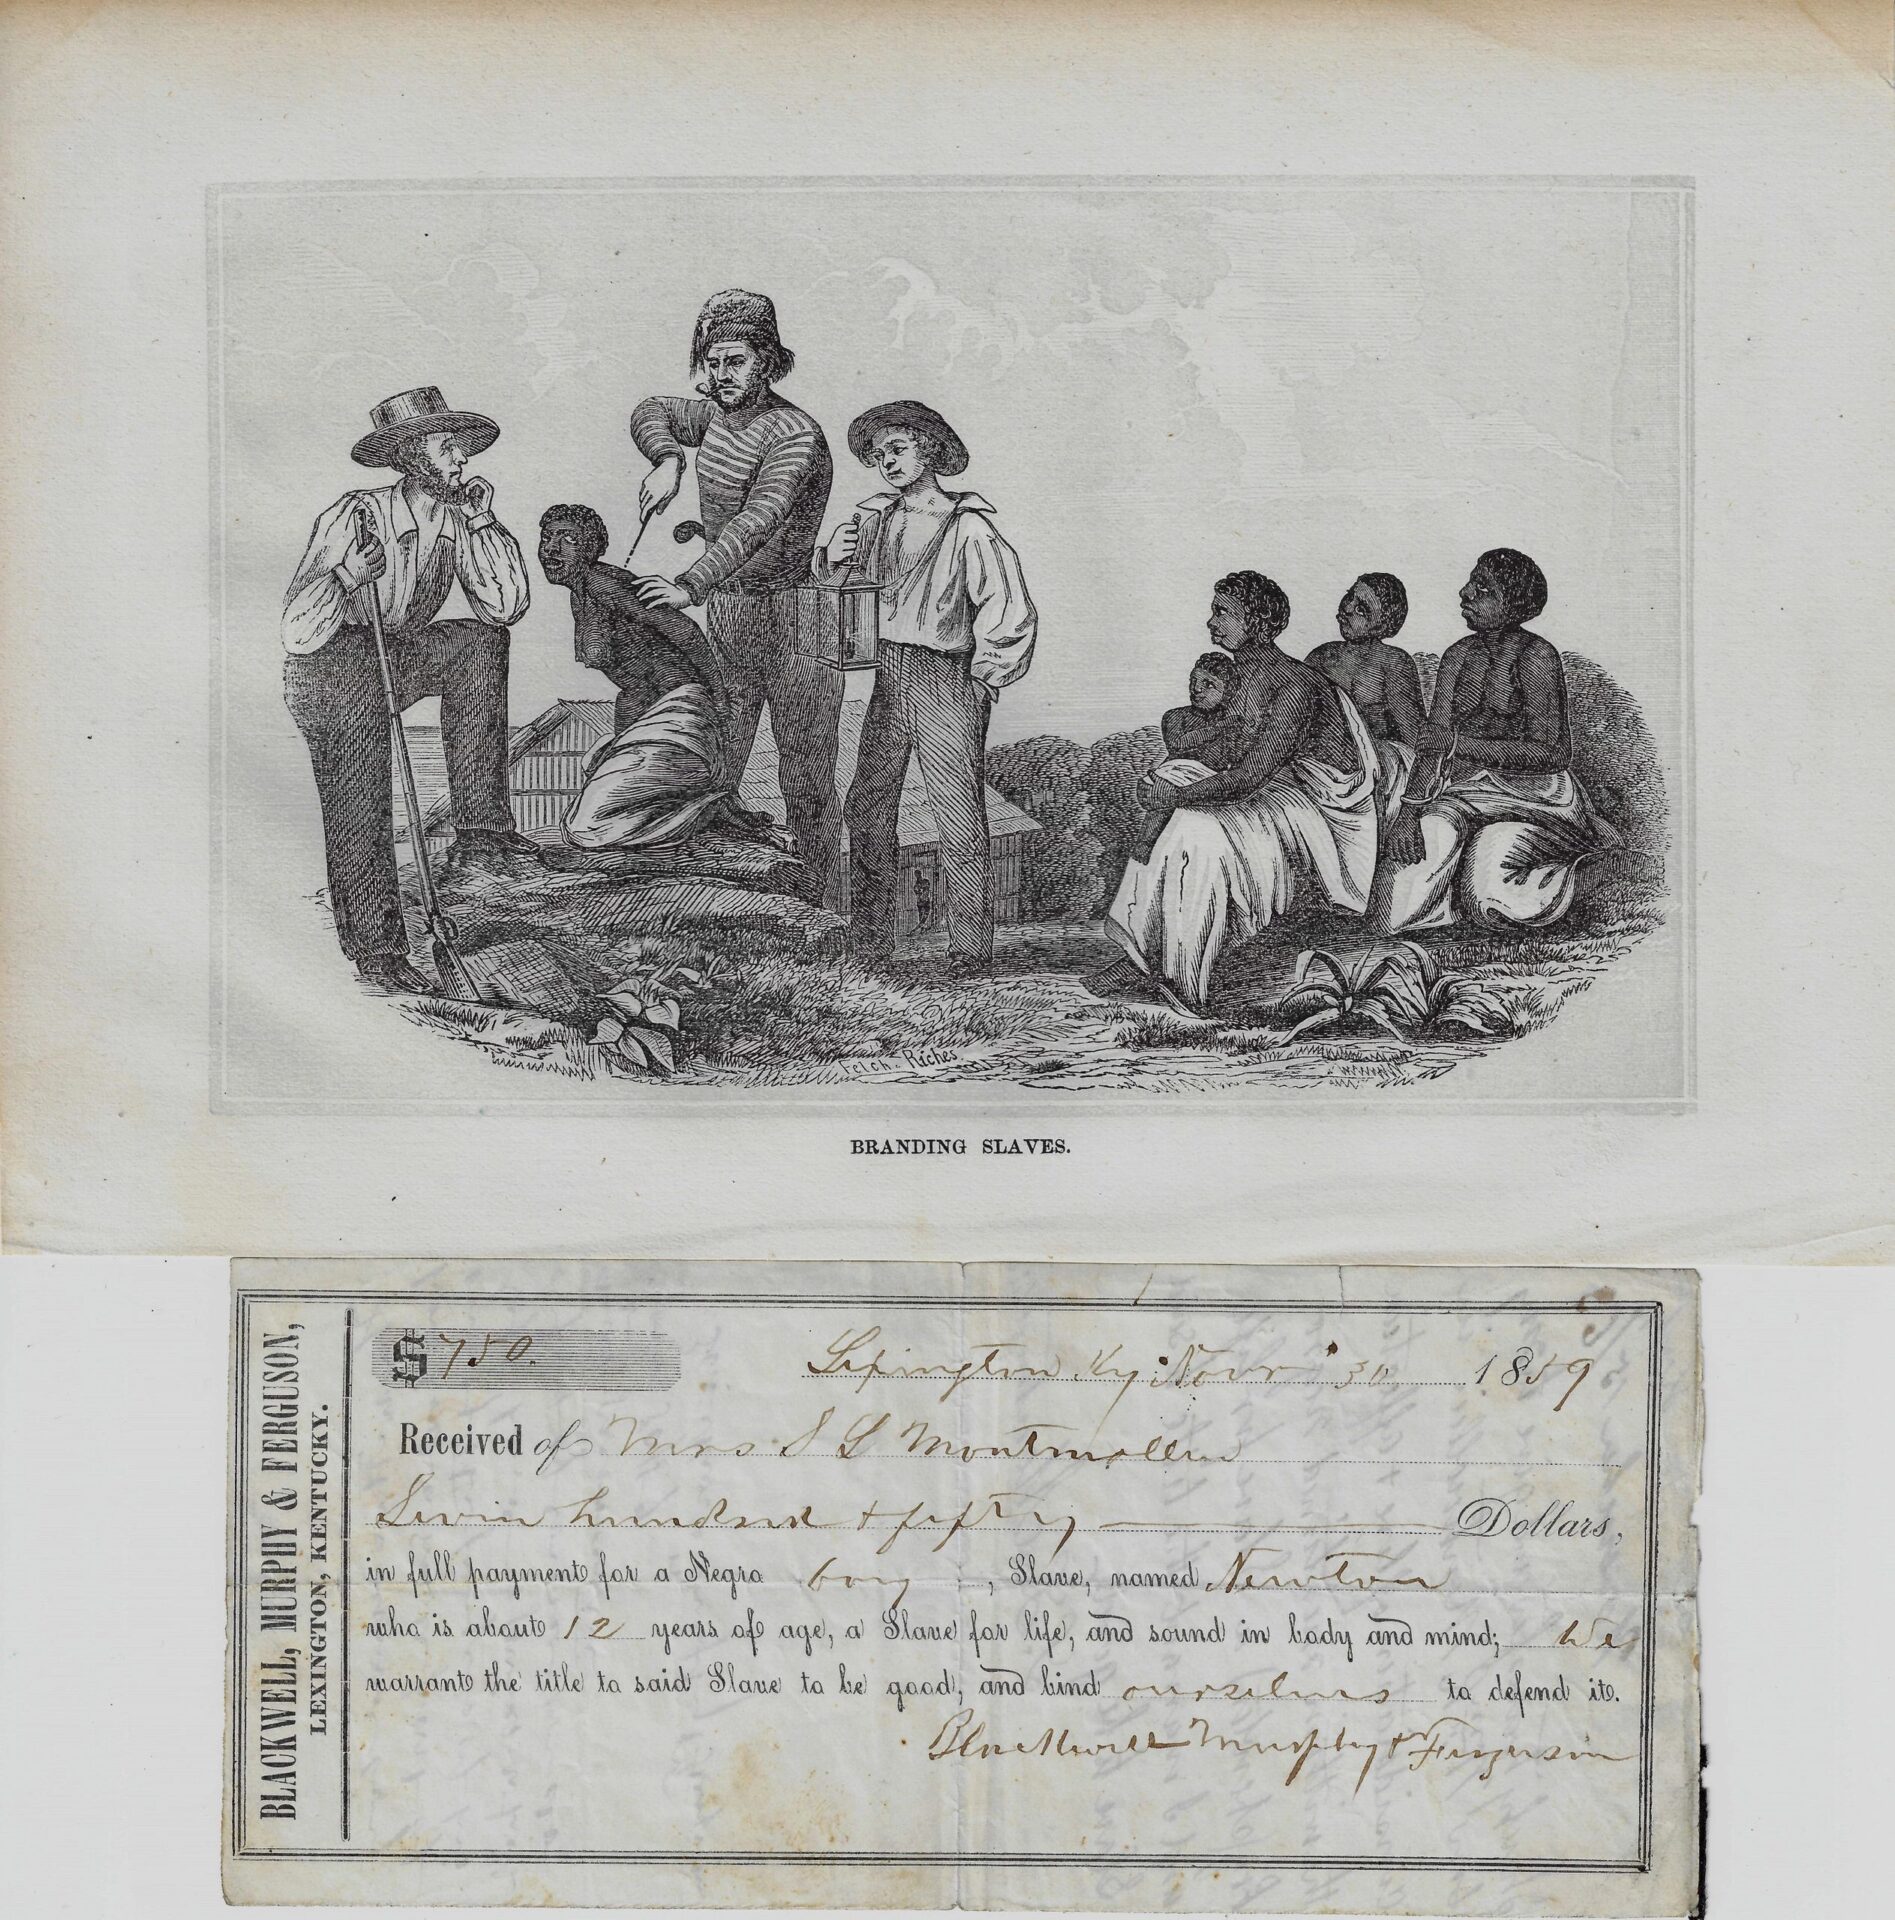 Fetch. Riches
BRANDING SLAVES.
BLACKWELL, MURPHY & FERGUSON,
LEXINGTON, KENTUCKY.
$ 750. Lexington Ky Novr 30 1859
Received of Mrs S L Montmollin
Seven hundred & fifty Dollars,
in full payment for a Negro boy, Slave, named Newton
who is about 12 years of age, a Slave for life, and sound in body and mind; We
warrant the title to said Slave to be good, and bind ourselves to defend it.
Blackwell Murphy & Ferguson